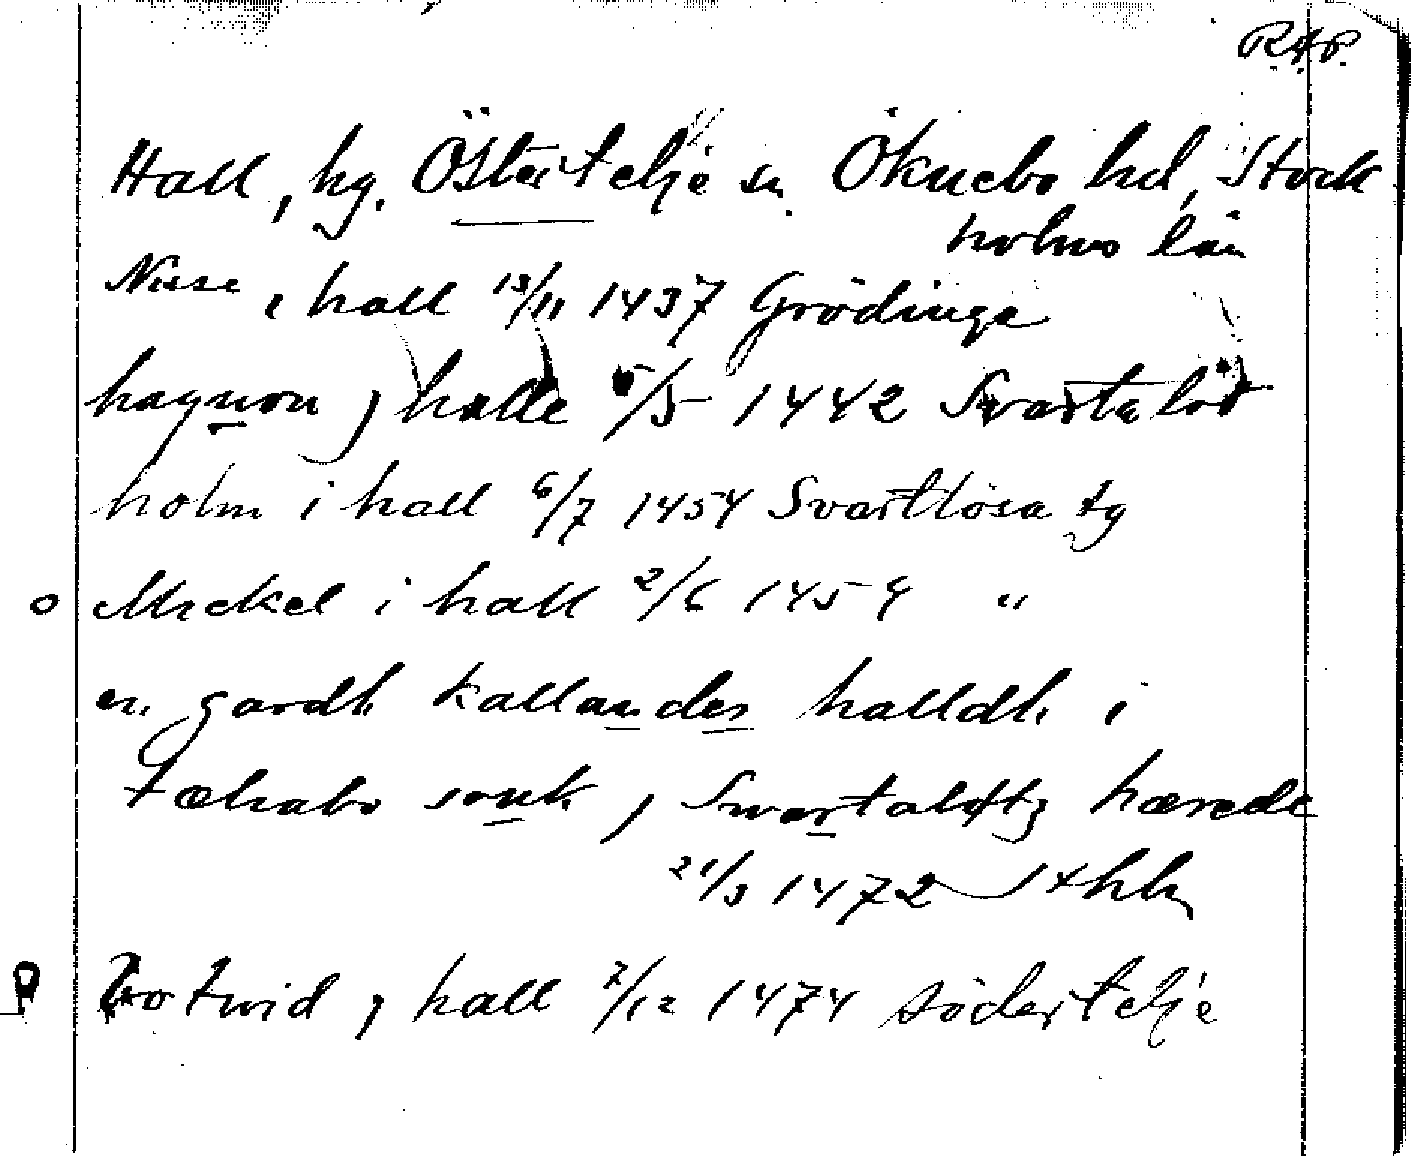 R.A.P.
Hall, hg. Östertelje sn. Öknebo hd, Stock
holms län
Nisse i hall 13/11 1437 Grödinge
hagnon j halle 5/5 1442 Svartalöt
holm i hall 6/7 1454 Svartlösa tg
o Mickel i hall 2/6 1459 "
en gardh kallandes halldh i
tæhabo sonk, j Swartaløtz hærede
21/3 1472 Sthlm
Botwid j hall 7/12 1474 södertelje